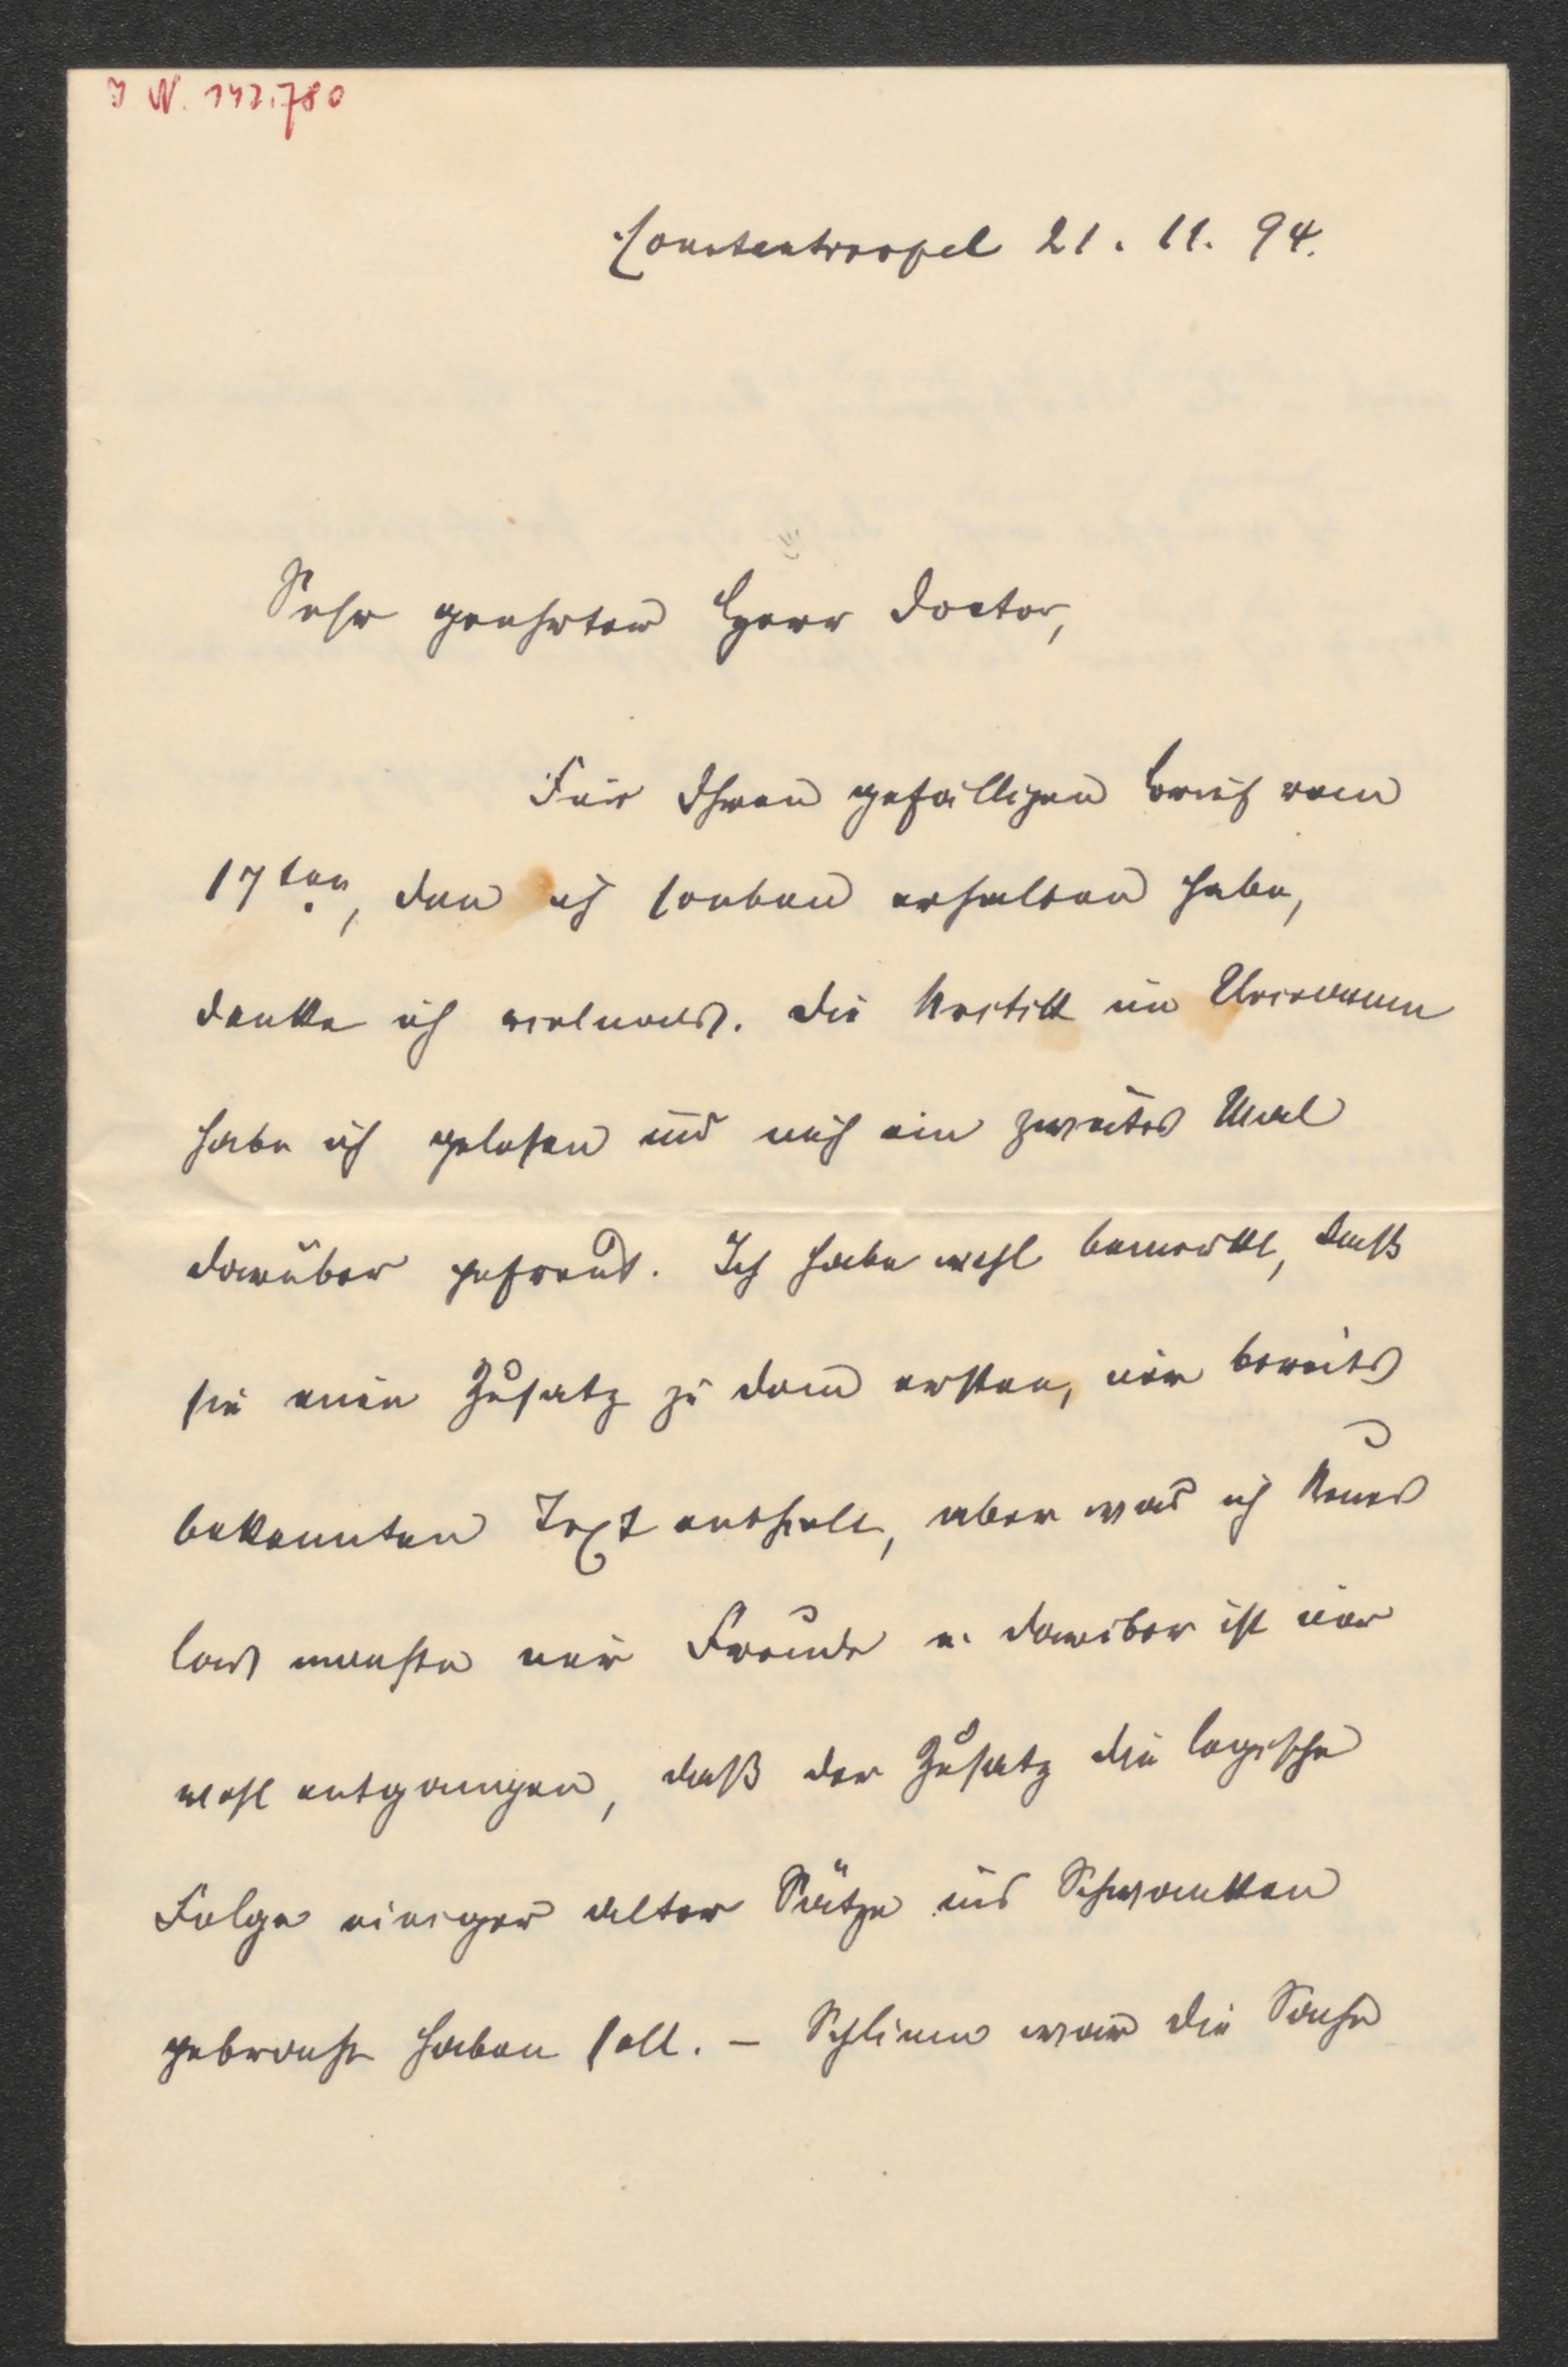 I N. 142.780
Constantinopel 21. 11. 94.
Sehr geehrter Herr Doctor,
Für Ihren gefälligen Brief vom
17ten, den ich soeben erhalten habe,
danke ich vielmals. Die Kritik im
habe ich gelesen und mich ein zweites Mal
darüber gefreut. Ich habe wohl bemerkt, daß
sie einen Zusatz zu dem ersten, mir bereits
bekannten Text enthielt, aber was ich Neues
las machte mir Freude u. darüber ist mir
wohl entgangen, daß der Zusatz die logische
Folge einiger alter Sätze ins Schwanken
gebracht haben soll. – Schlimm war die Sache